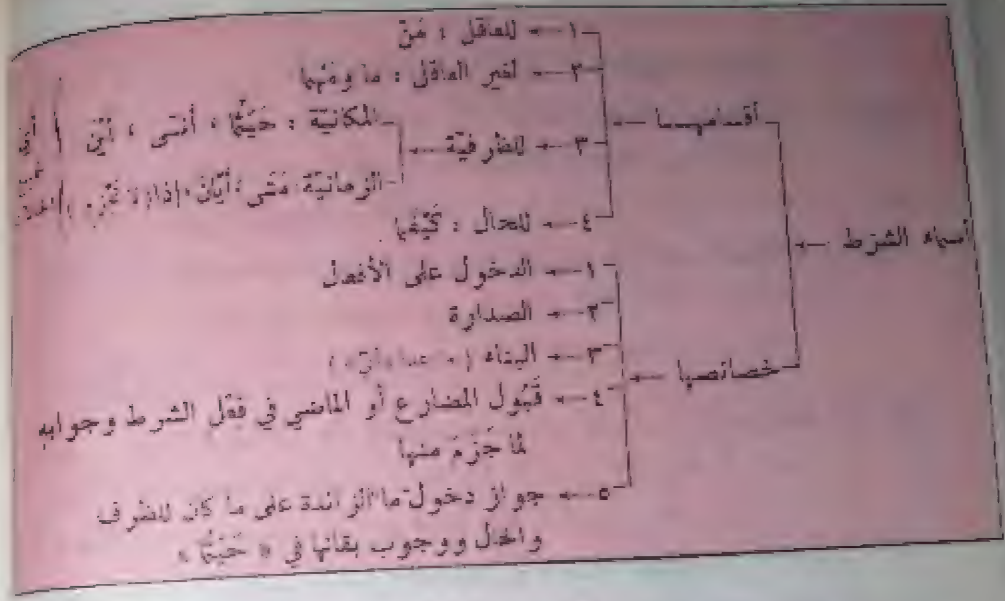 أسماء الشرط
أقسامهـا
١ــ للعاقل : مَنْ
٢ــ لغير العاقل : ما ومَهْما
٣ــ للظرفيّة
المكانيّة : حَيْثُما ، أنّى ، أيْنَ
الزمانيّة: مَتى ، أيّانَ، إذا ( لا تَجْزِم )
أيّ
٤ــ للحال : كَيْفَما
خصائصها
١ــ الدخول على الأفعال
٢ــ الصدارة
٣ــ البناء ( ما عدا « أيّ » )
٤ــ قَبُول المضارع أو الماضي في فعْل الشرط وجوابه
لما جَزَمَ منها
٥ــ جواز دخول ما الزائدة على ما كان للظرف
والحال ووجوب بقائها في « حَيْثُما »